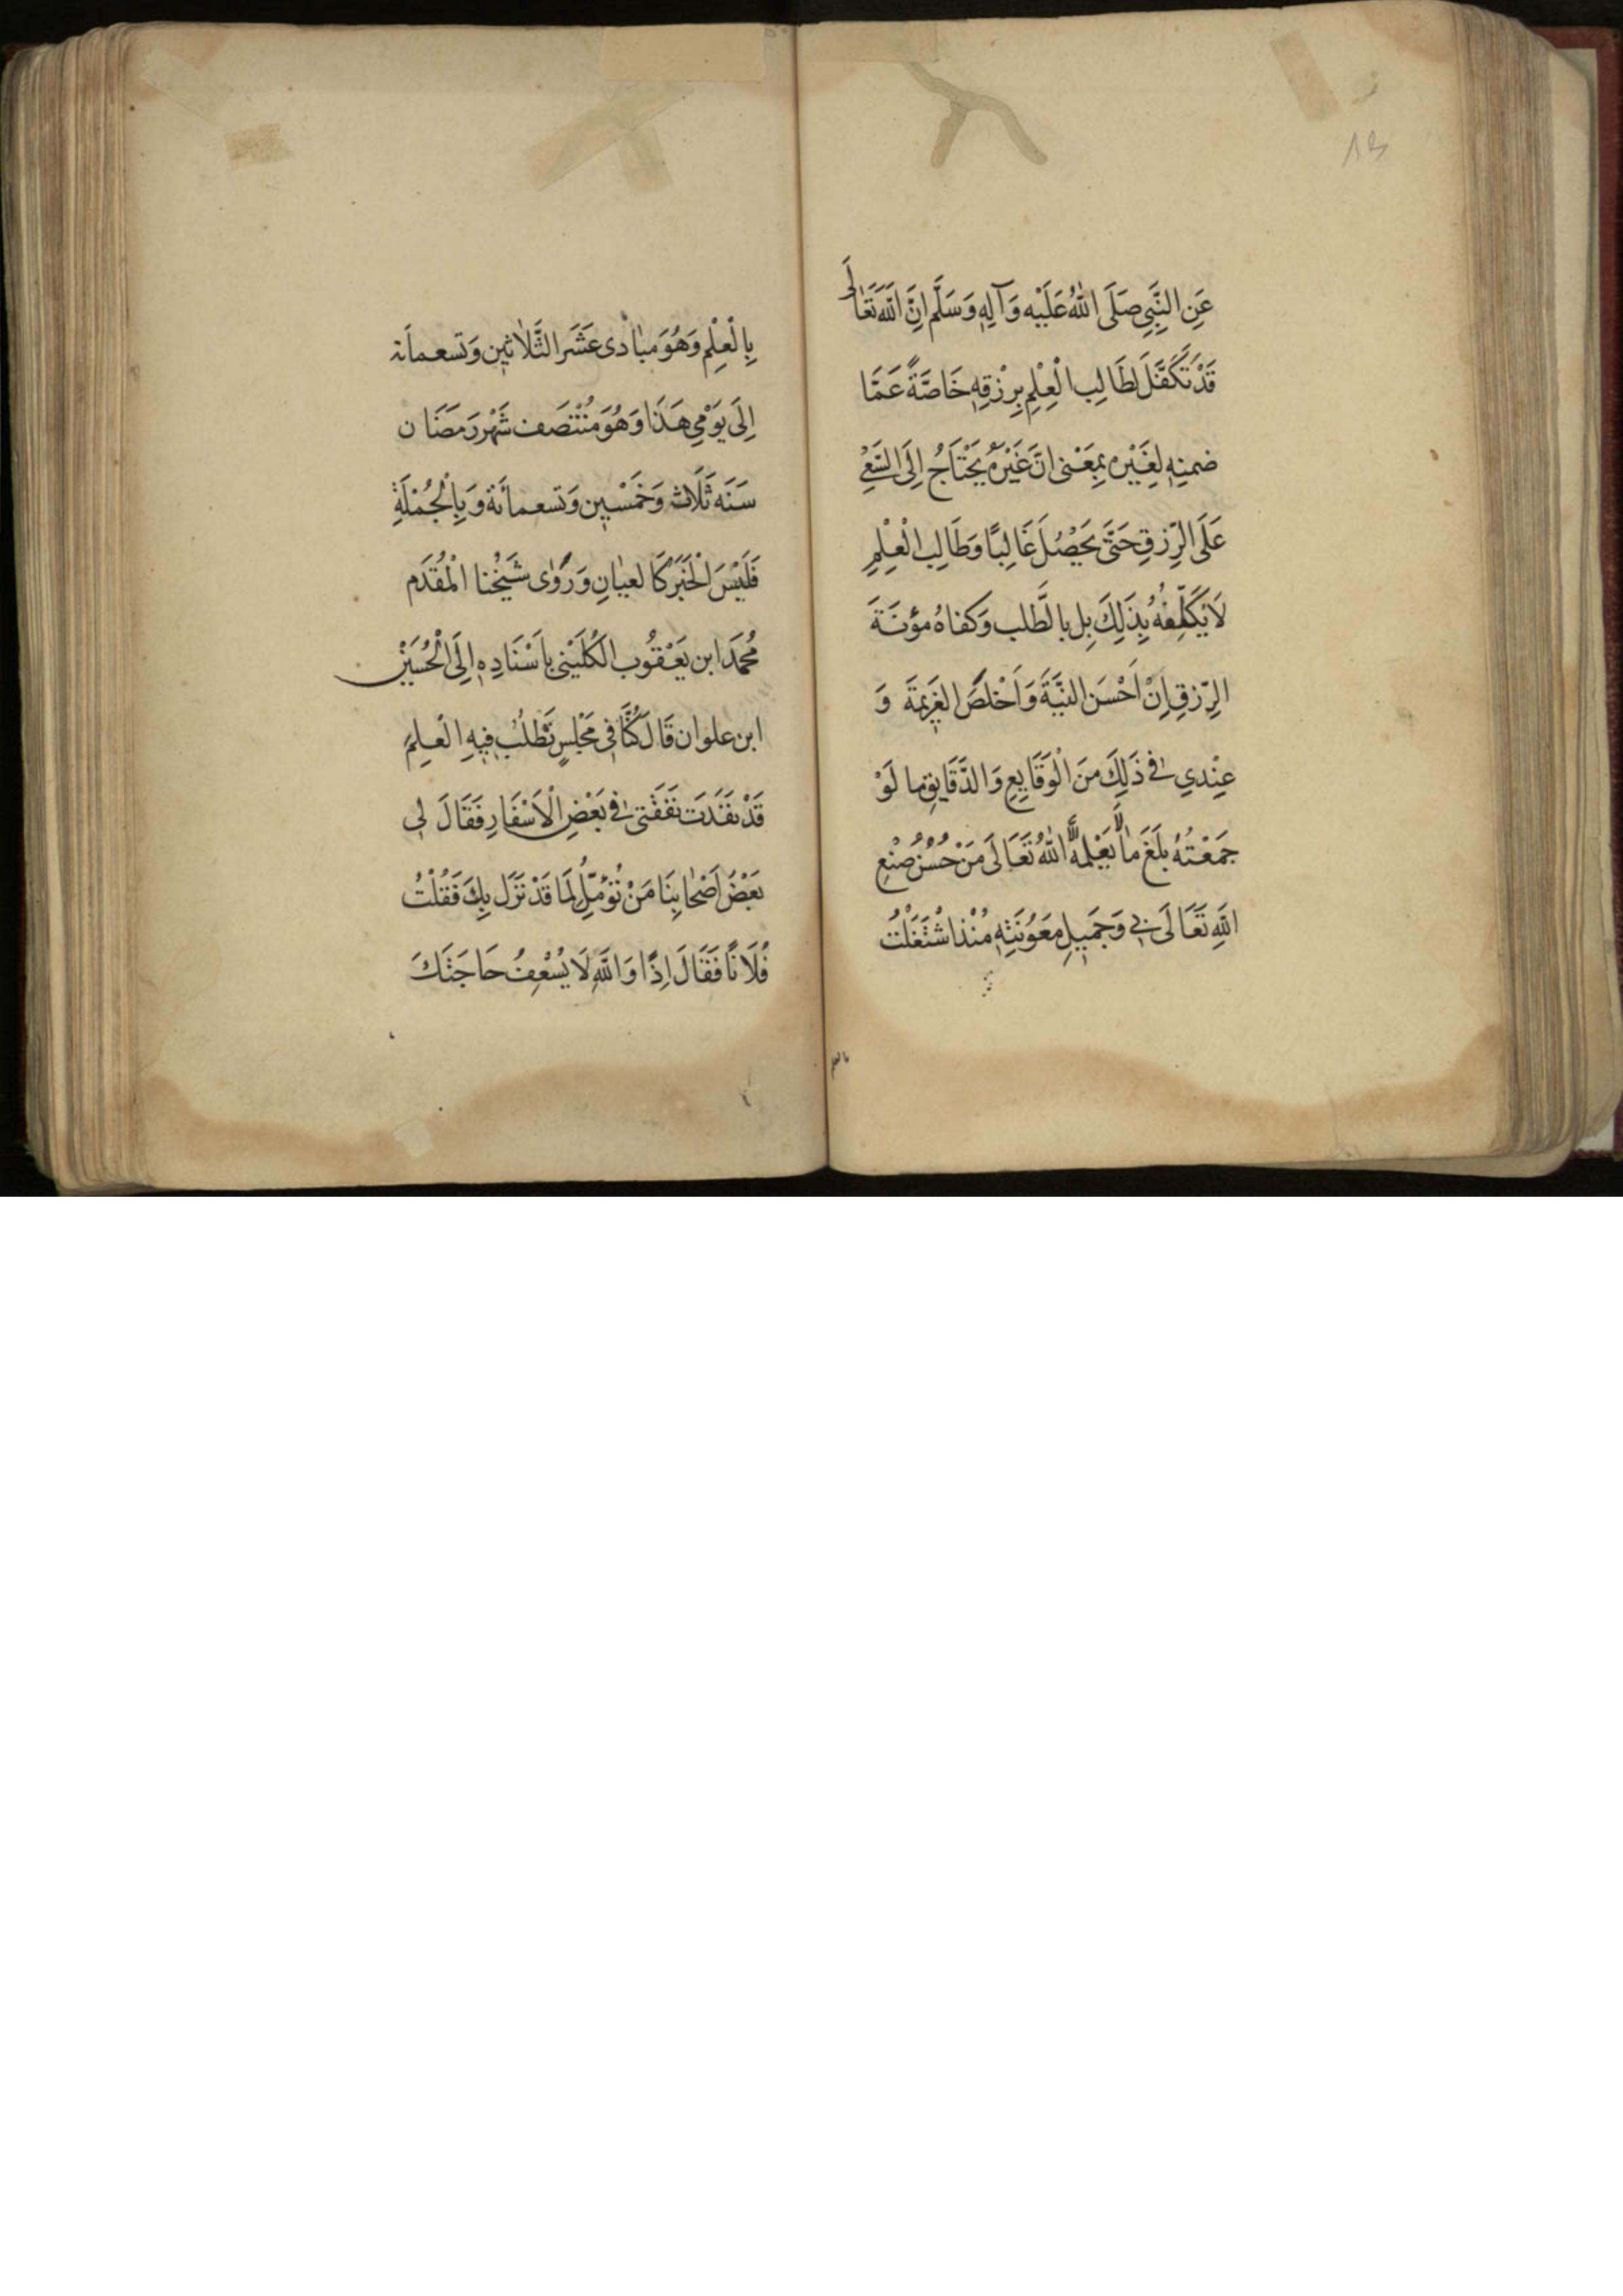 ١٣
عَنِ النَّبِيِّ صَلَّى اللهُ عَلَيْهِ وَآلِهِ وَسَلَّم اِنَّ اللَّهَ تَعَالَى
قَدْ تَكَفَّلَ لِطَالِبِ الْعِلْمِ بِرِزْقِهِ خَاصَّةً عَمَّا
ضمنه لِغَيْره بِمَعْنى اَنَّ غَيْرَهُ يَحْتَاجُ اِلَى السَّعْيِ
عَلَى الرِّزقِ حَتَّى يَحْصُلَ غَالِبًا وَطَالِب الْعِلْمِ
لَا يُكَلِّفُهُ بِذَلِكَ بل بالطَّلب وَكفاهُ مؤنَةَ
الرِّزقِ اِنْ اَحْسَن النِّيَّةَ وَاَخْلَصَ العَزِيمَةَ وَ
عِنْدِي في ذَلِكَ مِنَ الْوَقَايِعِ وَالدَّقَايِقِ ما لَوْ
جَمَعْتُهُ بَلَغَ مَا لَا يَعْلمهُ اِلَّا اللهُ تَعَالَى مِنْ حُسْنِ صُنْعِ
اللهِ تَعَالَى بي وَجَمِيلِ مَعَوُنَتِهِ مُنْذُ اشْتَغَلْتُ
بالعلم
بِالْعِلْمِ وَهُوَ مَبَادى عَشَر الثَّلَاثِين وَتسعماَئة
اِلَى يَوْمِي هَذَا وَهُوَ مُنْتَصَف شَهْر رَمَضَان
سَنَه ثَلَاث وَخَمْسِين وَتسعمائَة وَبِالْجُمْلَةِ
فَلَيْسَ الْخَبَرُ كَالعيانِ وَرَوَى شَيْخُنا الْمُقَدَم
مُحَمَد ابن يَعْقُوب الكُلَيْني باَسْنَادِه اِلَى الْحُسَيْنِ
ابن علوان قَالَ كُنَّا فِي مَجْلِسٍ نَطْلُب فِيهِ الْعلِمَ
قَدْ نفَدَت نَفَقَتى في بَعْضِ الْاَسْفَارِ فَقَالَ لي
بَعْضُ اَصْحَابِنَا مَنْ تُؤَمِّلُ لِمَا قَدْ نَزَل بِكَ فَقُلْتُ
فُلَانًا فَقَالَ اِذًا وَاللَّهِ لَا يُسْعِفُ حَاجَتَكَ